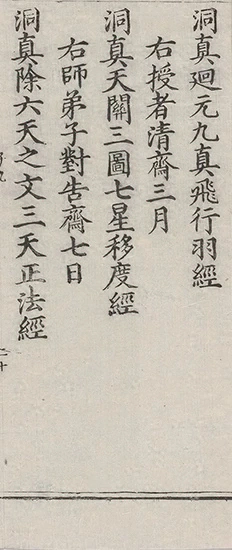 洞真廻元九真飛行羽經
右授者清齋三月
洞真天關三圖七星移度經
右師弟子對告齋七日
洞真除六天之文三天正法經